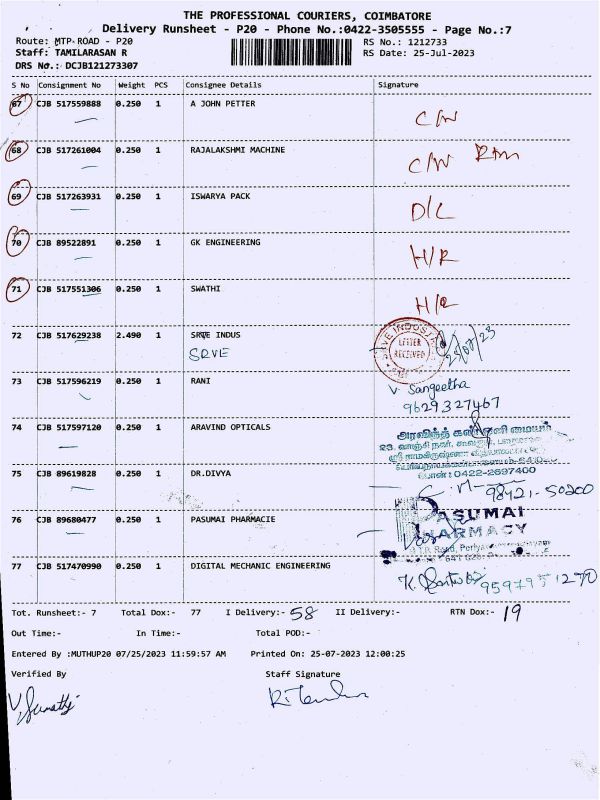 THE PROFESSIONAL COURIERS, COIMBATORE
Delivery Runsheet - P20 - Phone No.:0422-3505555 - Page No.:7
Route: MTP ROAD - P20 RS No.: 1212733
Staff: TAMILARASAN R RS Date: 25-Jul-2023
DRS No.: DCJB121273307
S No Consignment No Weight PCS Consignee Details Signature
67 CJB 517559888 0.250 1 A JOHN PETTER
C/N
68 CJB 517261004 0.250 1 RAJALAKSHMI MACHINE
C/N
69 CJB 517263931 0.250 1 ISWARYA PACK
D/L
70 CJB 89522891 0.250 1 GK ENGINEERING
H/R
71 CJB 517551306 0.250 1 SWATHI
H/R
72 CJB 517629238 2.490 1 SRVE INDUS
SRVE
LETTER
RECEIVED
25/07/23
73 CJB 517596219 0.250 1 RANI
V. Sangeetha
9629327467
74 CJB 517597120 0.250 1 ARAVIND OPTICALS
அரவிந்த் கண்ணாளி மையம்
75 CJB 89619828 0.250 1 DR.DIVYA
0422-2697400
98421-50200
76 CJB 89680477 0.250 1 PASUMAI PHARMACIE
PASUMAI
PHARMACY
77 CJB 517470990 0.250 1 DIGITAL MECHANIC ENGINEERING
9597951270
Tot. Runsheet:- 7 Total Dox:- 77 I Delivery:- 58 II Delivery:- RTN Dox:- 19
Out Time:- In Time:- Total POD:-
Entered By :MUTHUP20 07/25/2023 11:59:57 AM Printed On: 25-07-2023 12:00:25
Verified By Staff Signature